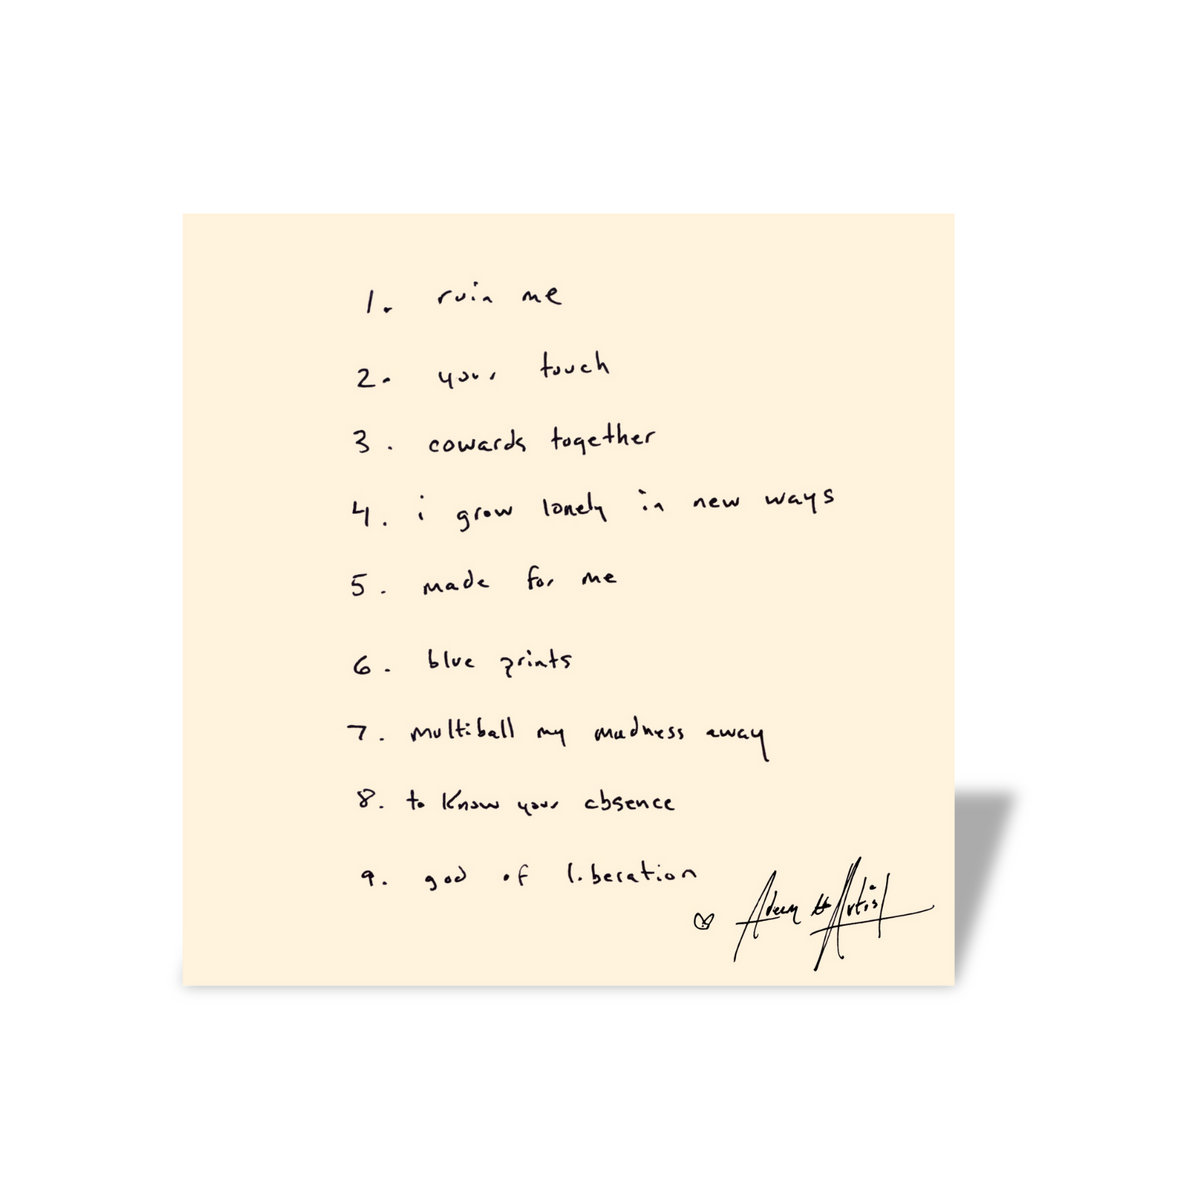 1. ruin me
2. your touch
3. cowards together
4. i grow lonely in new ways
5. made for me
6. blue prints
7. multiball my madness away
8. to know your absence
9. god of liberation
Adeem the Artist